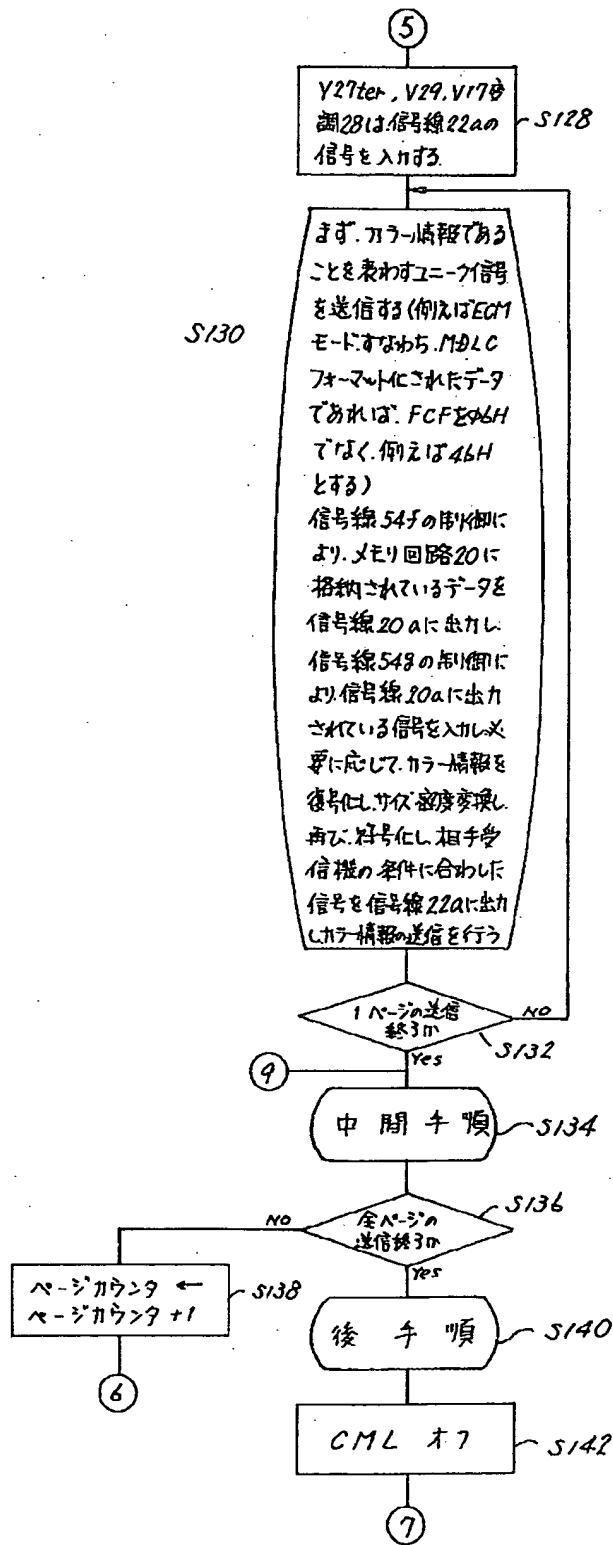 5
V27ter, V29, V17変
調28は.信号線22aの
信号を入力する.
S128
S130
まず.カラー情報である
ことを表わすユニーク信号
を送信する(例えばECM
モード.すなわち.MDLC
フォーマット化されたデータ
であれば.FCFをφ6H
でなく.例えば46H
とする)
信号線54fの制御に
より.メモリ回路20に
格納されているデータを
信号線20aに出力し.
信号線54gの制御に
より.信号線20aに出力
されている信号を入力し.必
要に応じて.カラー情報を
復号化し.サイズ密度変換し.
再び.符号化し.相手受
信機の条件に合わした
信号を信号線22aに出力
しカラー情報の送信を行う
1ページの送信
終了か
NO
S132
Yes
9
中間手順
S134
S136
全ページの
送信終了か
NO
Yes
ページカウンタ ←
ページカウンタ +1
S138
後手順
S140
6
CML オフ
S142
7